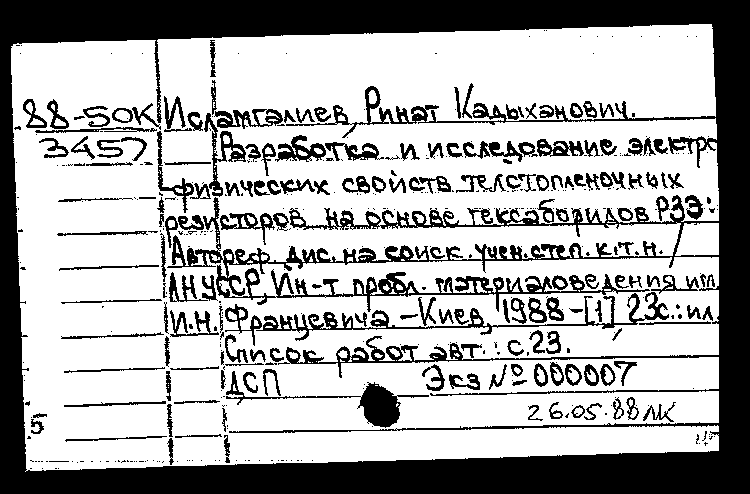 88-50К Исламгалиев, Ринат Кадыханович.
3457 Разработка и исследование электро
-физических свойств телстопленочных
резисторов на основе гексаборидов РЗЭ:
Автореф. дис. на соиск. учен. степ. к.т.н. /
АН УССР, Ин-т пробл. материаловедения им.
И.Н. Францевича. -Киев, 1988 -[1], 23с.: ил.
Список работ авт.: с.23.
ДСП Экз № 000007
26.05.88 ЛК
5